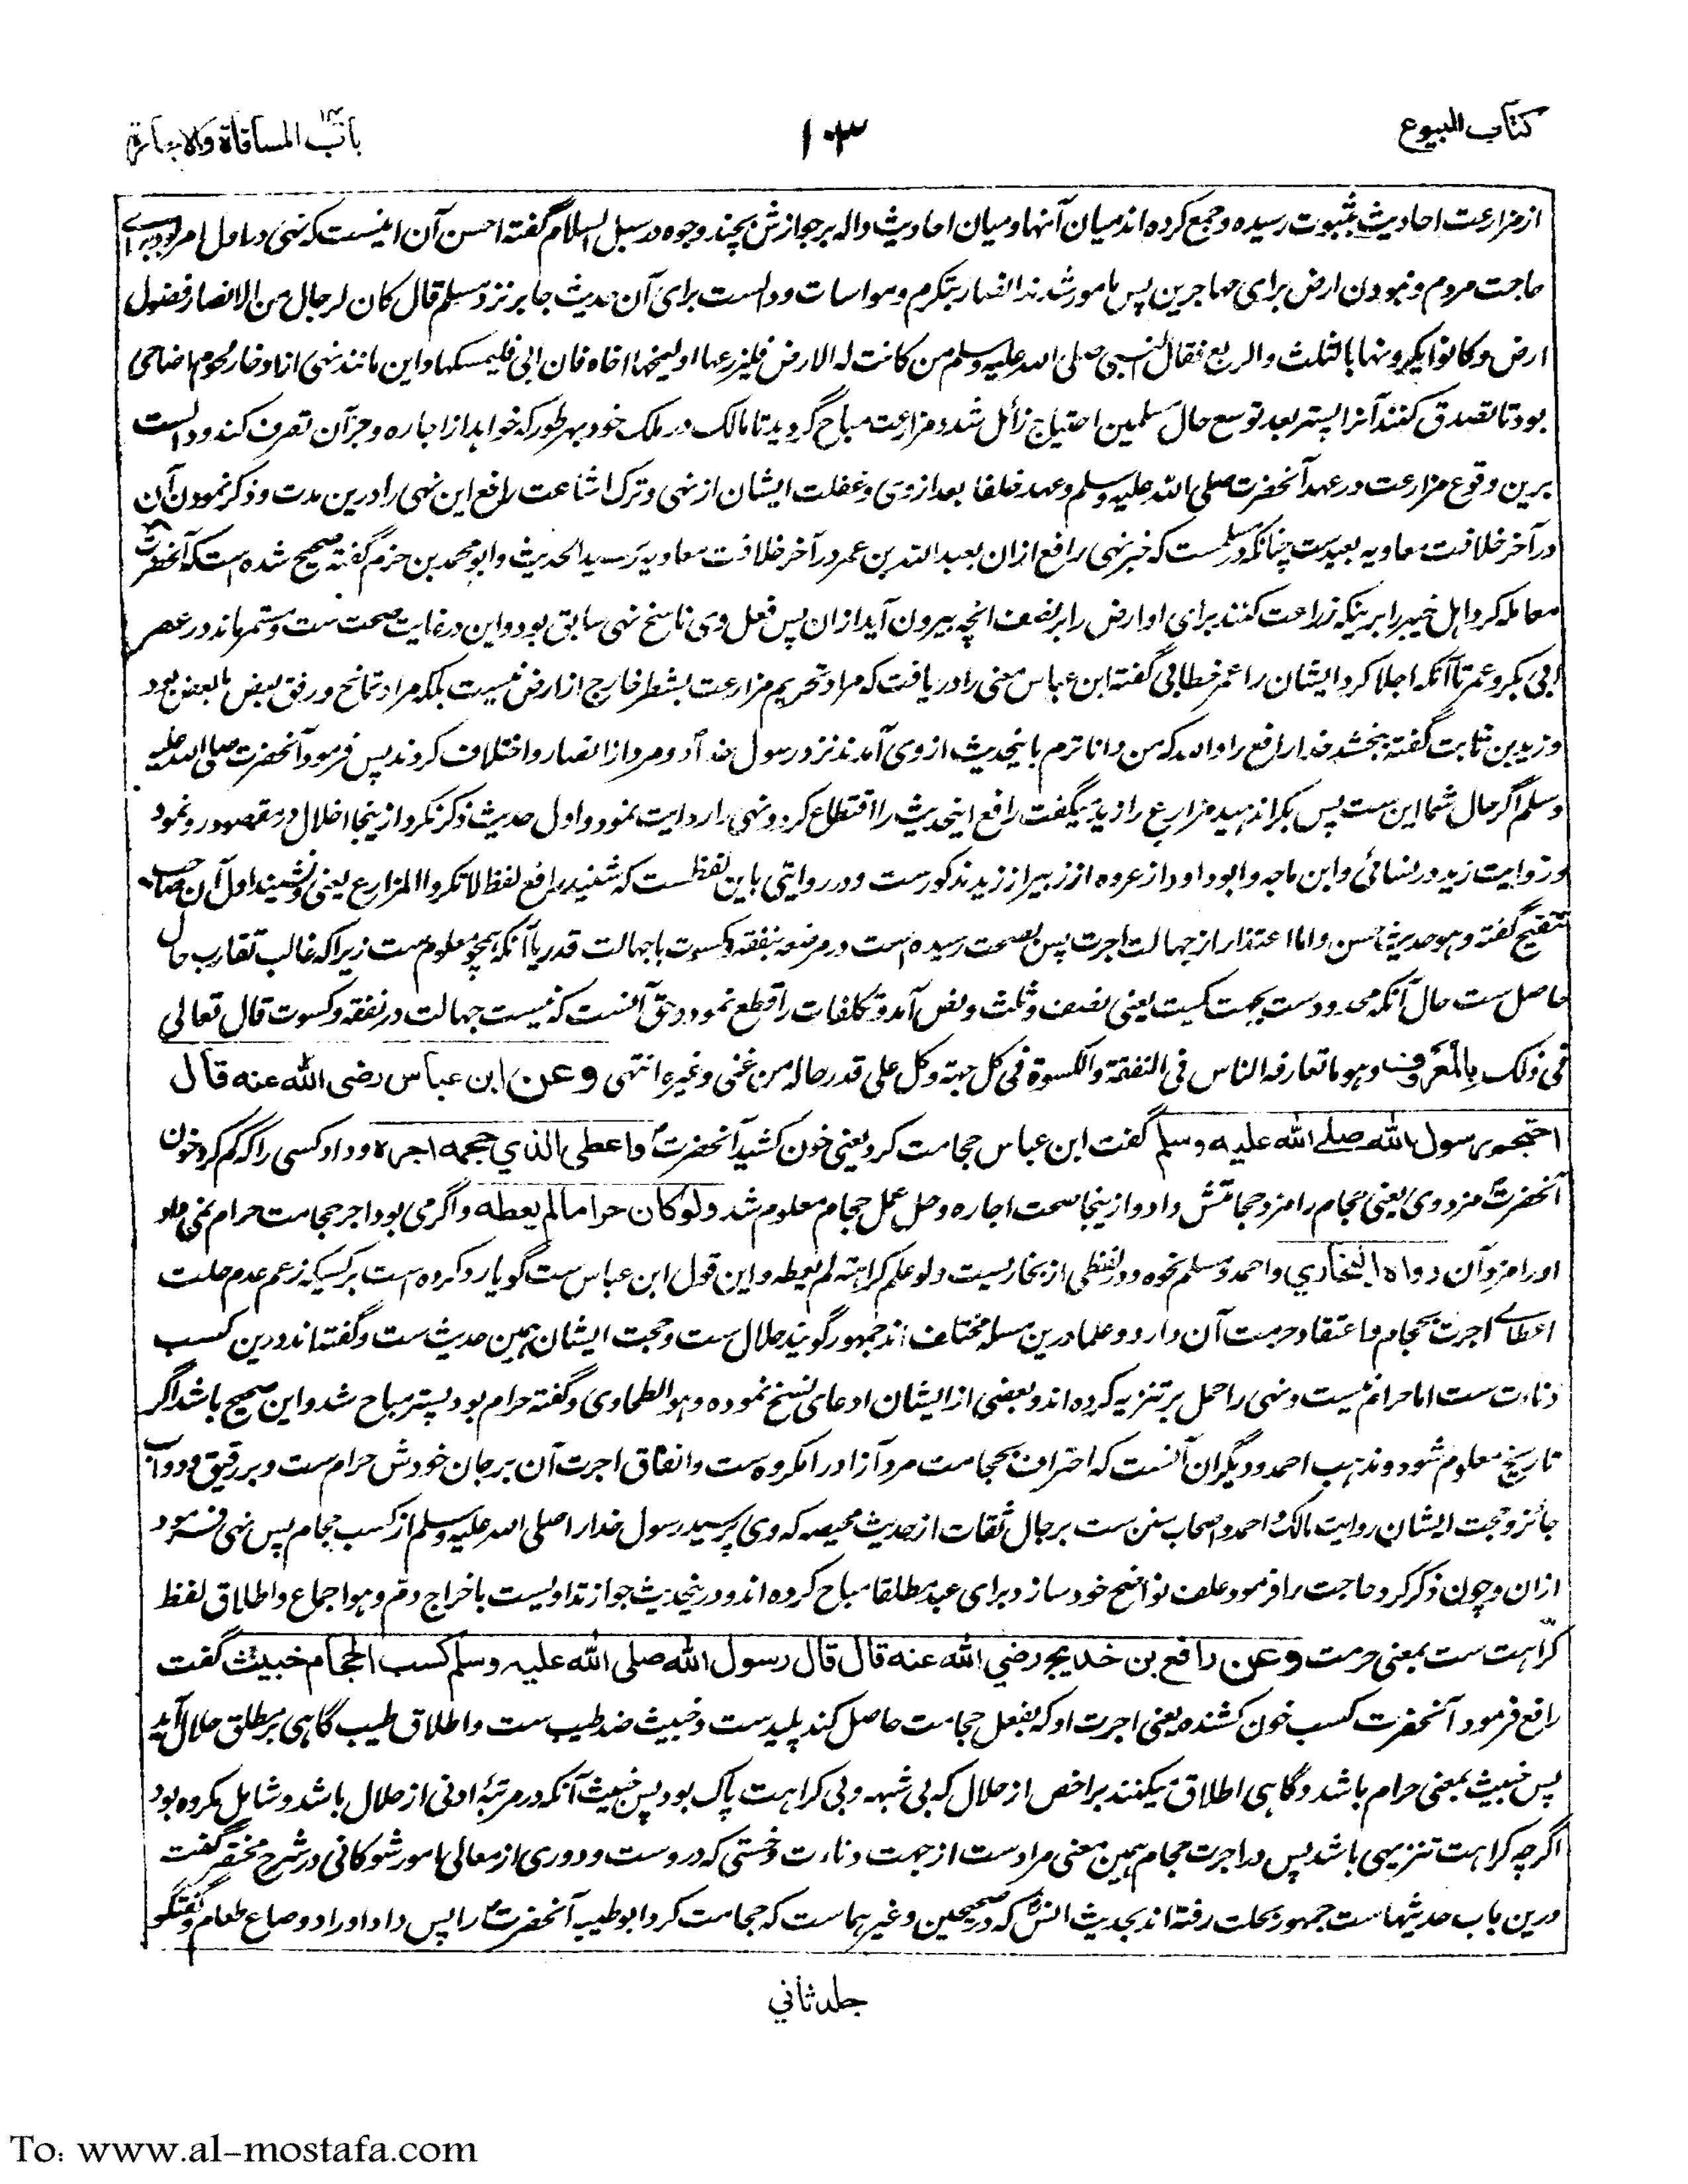 كتاب البيوع
۱۰۳
باب المساقاة والاجارة
از مزارعت احادیث بثبوت رسیده وجمع کرده اند میان آنها ومیان احادیث داله بر جوازش بچند وجوه در سبل السلام گفته احسن آن اینست که نهی در اول امر بود برای
حاجت مردم ونبودن ارض برای مهاجرین پس مامور شدند انصار بتکرم ومواسات ودالست برای آن حدیث جابر نزد مسلم قال کان لرجال من الانصار فضول
ارض وکانوا یکرونها بالثلث والربع فقال النبی صلی الله علیه وسلم من کانت له الارض فلیزرعها او لیمنحها اخاه فان ابی فلیمسکها واین مانند نهی از ادخار لحوم اضاحی
بود تا تصدق کنند آنرا پستر بعد توسع حال مسلمین احتیاج زائل شد ومزارعت مباح گردید تا مالک در ملک خود بهر طور که خواهد از اجاره وجز آن تصرف کند ودالست
برین وقوع مزارعت در عهد آنحضرت صلی الله علیه وسلم وعهد خلفا بعد از وی وغفلت ایشان از نهی وترک اشاعت رافع این نهی را درین مدت وذکر نمودن آن
در آخر خلافت معاویه بعیدست چنانکه در مسلمست که خبر نهی رافع ازان بعبد الله بن عمر در آخر خلافت معاویه برسید الحدیث وابو محمد بن حزم گفته صحیح شده است که آنحضرت
معامله کرد اهل خیبر را برینکه زراعت کنند برای او ارض را بر نصف انچه بیرون آید ازان پس فعل وی ناسخ نهی سابق بود واین در غایت صحت ست ومستمر ماند در عصر
ابی بکر وعمر تا آنکه اجلا کرد ایشان را عمر خطابی گفته ابن عباس معنی را دریافت که مراد تحریم مزارعت بشطر خارج از ارض نیست بلکه مراد تمانح ورفق بعض با بعض بود
وزید بن ثابت گفته ببخشد خدا رافع را والله که من داناترم باینحدیث از وی آمدند نزد رسول خدا دو مرد از انصار واختلاف کردند پس فرمود آنحضرت صلی الله علیه
وسلم اگر حال شما این ست پس بکرا ندهید مزارع را زید میگفت رافع اینحدیث را اقتطاع کرد ونهی را روایت نمود واول حدیث ذکر نکرد ازینجا اخلال در مقصود رو نمود
وروایت زید در نسائی وابن ماجه وابو داود از عروه از زبیر از زید مذکورست ودر روایتی باین لفظست که شنید رافع لفظ لا تکروا المزارع یعنی ونشنید اول آن صاحب
تنقیح گفته وهو حدیث حسن واما اعتذار از جهالت اجرت پس بصحت رسیده است در مرضعه بنفقه وکسوت با جهالت قدر یا آنکه همچو معلوم ست زیرا که غالب تقارب حال
حاصل ست حال آنکه محدودست بجهت کمیت یعنی نصف وثلث ونص آمد وتکلفات را قطع نمود وحق آنست که نیست جهالت در نفقه وکسوت قال تعالی
فی ذلک بالمعروف وهو ما تعارفه الناس فی النفقة والکسوة فی کل جهة وکل علی قدر حاله من غنی وغیره انتهی وعن ابن عباس رضی الله عنه قال
احتجم رسول الله صلی الله علیه وسلم گفت ابن عباس حجامت کرد یعنی خون کشید آنحضرت واعطی الذی حجمه اجره وداد کسی را که کم کرد خون
آنحضرت مزد وی یعنی حجام را مزد حجامتش داد وازینجا صحت اجاره وحل عمل حجام معلوم شد ولو کان حراما لم یعطه واگر می بود اجر حجامت حرام نمی داد
اورا مزد آن رواه البخاري واحمد ومسلم نحوه ودر لفظی از بخاریست ولو علم کراهته لم یعطه واین قول ابن عباس ست گویا رد کرده است بر کسیکه زعم عدم حلت
اعطای اجرت بحجام واعتقاد حرمت آن دارد وعلما درین مسله مختلف اند جمهور گویند حلال ست وحجت ایشان همین حدیث ست وگفته اند درین کسب
دناءت ست اما حرام نیست ونهی را حمل بر تنزیه کرده اند وبعضی از ایشان ادعای نسخ نموده وهو الطحاوی وگفته حرام بود پستر مباح شد واین صحیح باشد اگر
تاریخ معلوم شود ومذهب احمد ودیگران آنست که احتراف بحجامت مرد آزاد را مکروه ست وانفاق اجرت آن بر جان خودش حرام ست وبر رقیق ودواب
جائز وحجت ایشان روایت مالک واحمد واصحاب سنن ست برجال ثقات از حدیث محیصه که وی پرسید رسول خدا را صلی الله علیه وسلم از کسب حجام پس نهی فرمود
ازان وچون ذکر کرد حاجت را فرمود علف نواضح خود سازد برای عبد مطلقا مباح کرده اند ودرینحدیث جواز تداویست باخراج دم وهو اجماع واطلاق لفظ
کراهت ست بمعنی حرمت وعن رافع بن خدیج رضی الله عنه قال قال رسول الله صلی الله علیه وسلم کسب الحجام خبیث گفت
رافع فرمود آنحضرت کسب خون کشنده یعنی اجرت او که بفعل حجامت حاصل کند پلیدست وخبیث ضد طیب ست واطلاق طیب گاهی بر مطلق حلال آید
پس خبیث بمعنی حرام باشد وگاهی اطلاق میکنند بر اخص از حلال که بی شبهه وبی کراهت پاک بود پس خبیث آنکه در مرتبۀ ادنی از حلال باشد وشامل مکروه بود
اگرچه کراهت تنزیهی باشد پس در اجرت حجام همین معنی مرادست از جهت دناءت وخستی که دروست ودوری از معالی امور شوکانی در شرح مختصر گفت
درین باب حدیثهاست جمهور بحلت رفته اند بحدیث انس که در صحیحین وغیرهماست که حجامت کرد ابو طیبه آنحضرت را پس داد اورا دو صاع طعام وگفتگو
جلد ثاني
To: www.al-mostafa.com